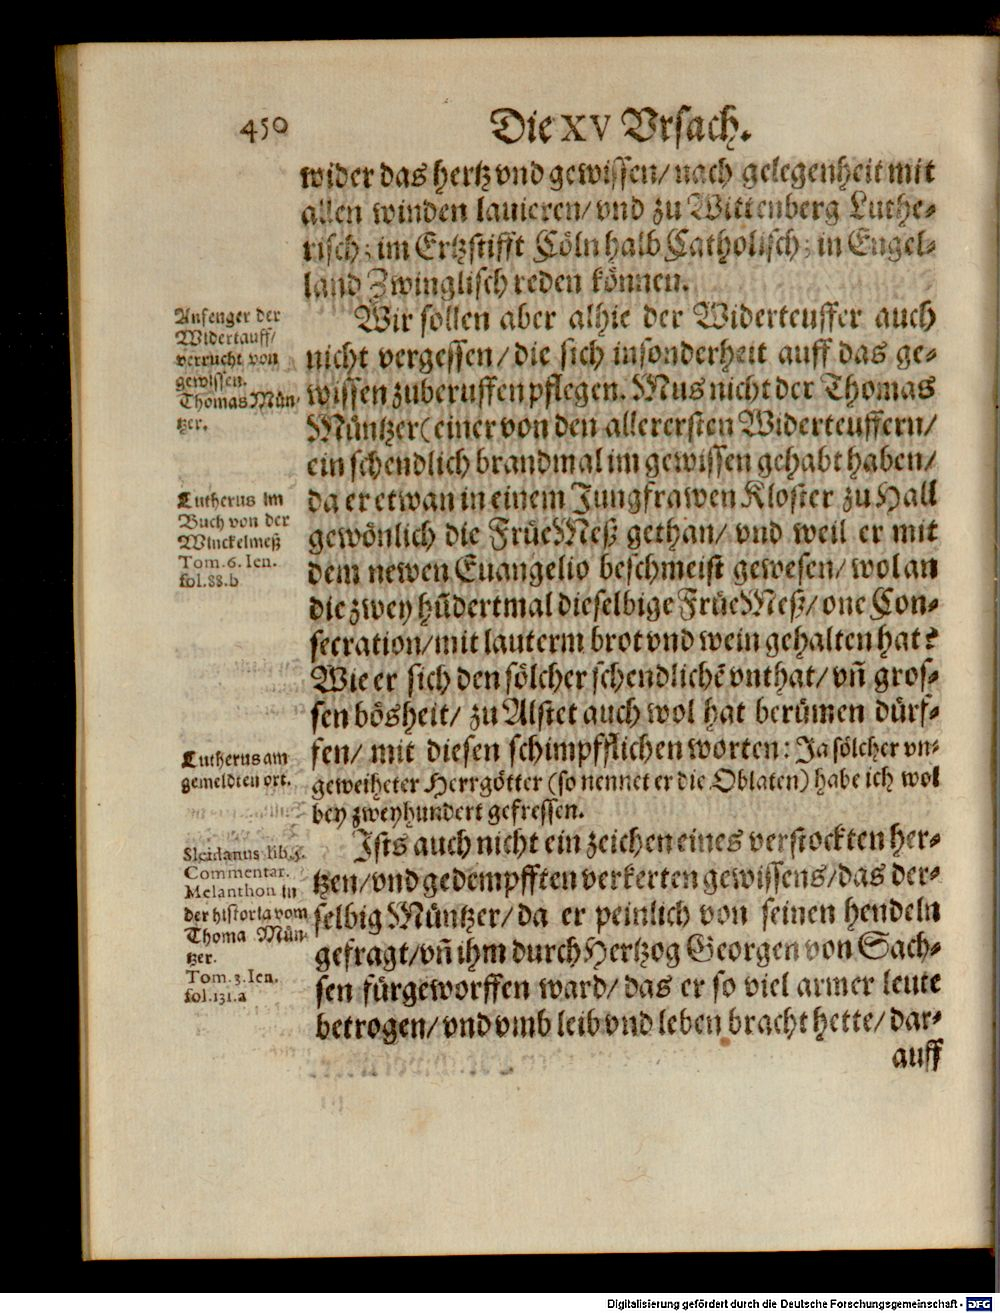 450
Die XV Vrsach.
wider das hertz vnd gewissen/ nach gelegenheit mit
allen winden lauieren/ vnd zu Wittenberg Luthe-
risch; im Ertzstifft Cöln halb Catholisch; in Engel-
land Zwinglisch reden können.
Wir sollen aber alhie der Widerteuffer auch
nicht vergessen/ die sich insonderheit auff das ge-
wissen zuberuffen pflegen. Mus nicht der Thomas
Müntzer (einer von den allerersten Widerteuffern/
ein schendlich brandmal im gewissen gehabt haben/
da er etwan in einem Jungfrawen Kloster zu Hall
gewönlich die FrüeMeß gethan/ vnd weil er mit
dem newen Euangelio beschmeist gewesen/ wol an
die zwey hūdertmal dieselbige FrüeMeß/ one Con-
secration/ mit lauterm brot vnd wein gehalten hat?
Wie er sich den sölcher schendlichē vnthat/ vñ gros-
sen bösheit/ zu Alstet auch wol hat berümen dürf-
fen/ mit diesen schimpfflichen worten: Ja sölcher vn-
geweiheter Herrgötter (so nennet er die Oblaten) habe ich wol
bey zweyhundert gefressen.
Ists auch nicht ein zeichen eines verstockten her-
tzen/ vnd gedempfften verkerten gewissens/ das der-
selbig Müntzer/ da er peinlich von seinen hendeln
gefragt/ vñ ihm durch Hertzog Georgen von Sach-
sen fürgeworffen ward/ das er so viel armer leute
betrogen/ vnd vmb leib vnd leben bracht hette/ dar-
auff
Anfenger der
Widertauff/
verrucht von
gewissen.
Thomas Mün-
tzer.
Lutherus im
Buch von der
Winckelmeß
Tom. 6. Ien.
fol. 88. b
Lutherus am
gemeldten ort.
Sleidanus lib. 5.
Commentar.
Melanthon in
der historia vom
Thoma Mün-
tzer.
Tom. 3. Ien.
fol. 131. a
Digitalisierung gefördert durch die Deutsche Forschungsgemeinschaft - DFG